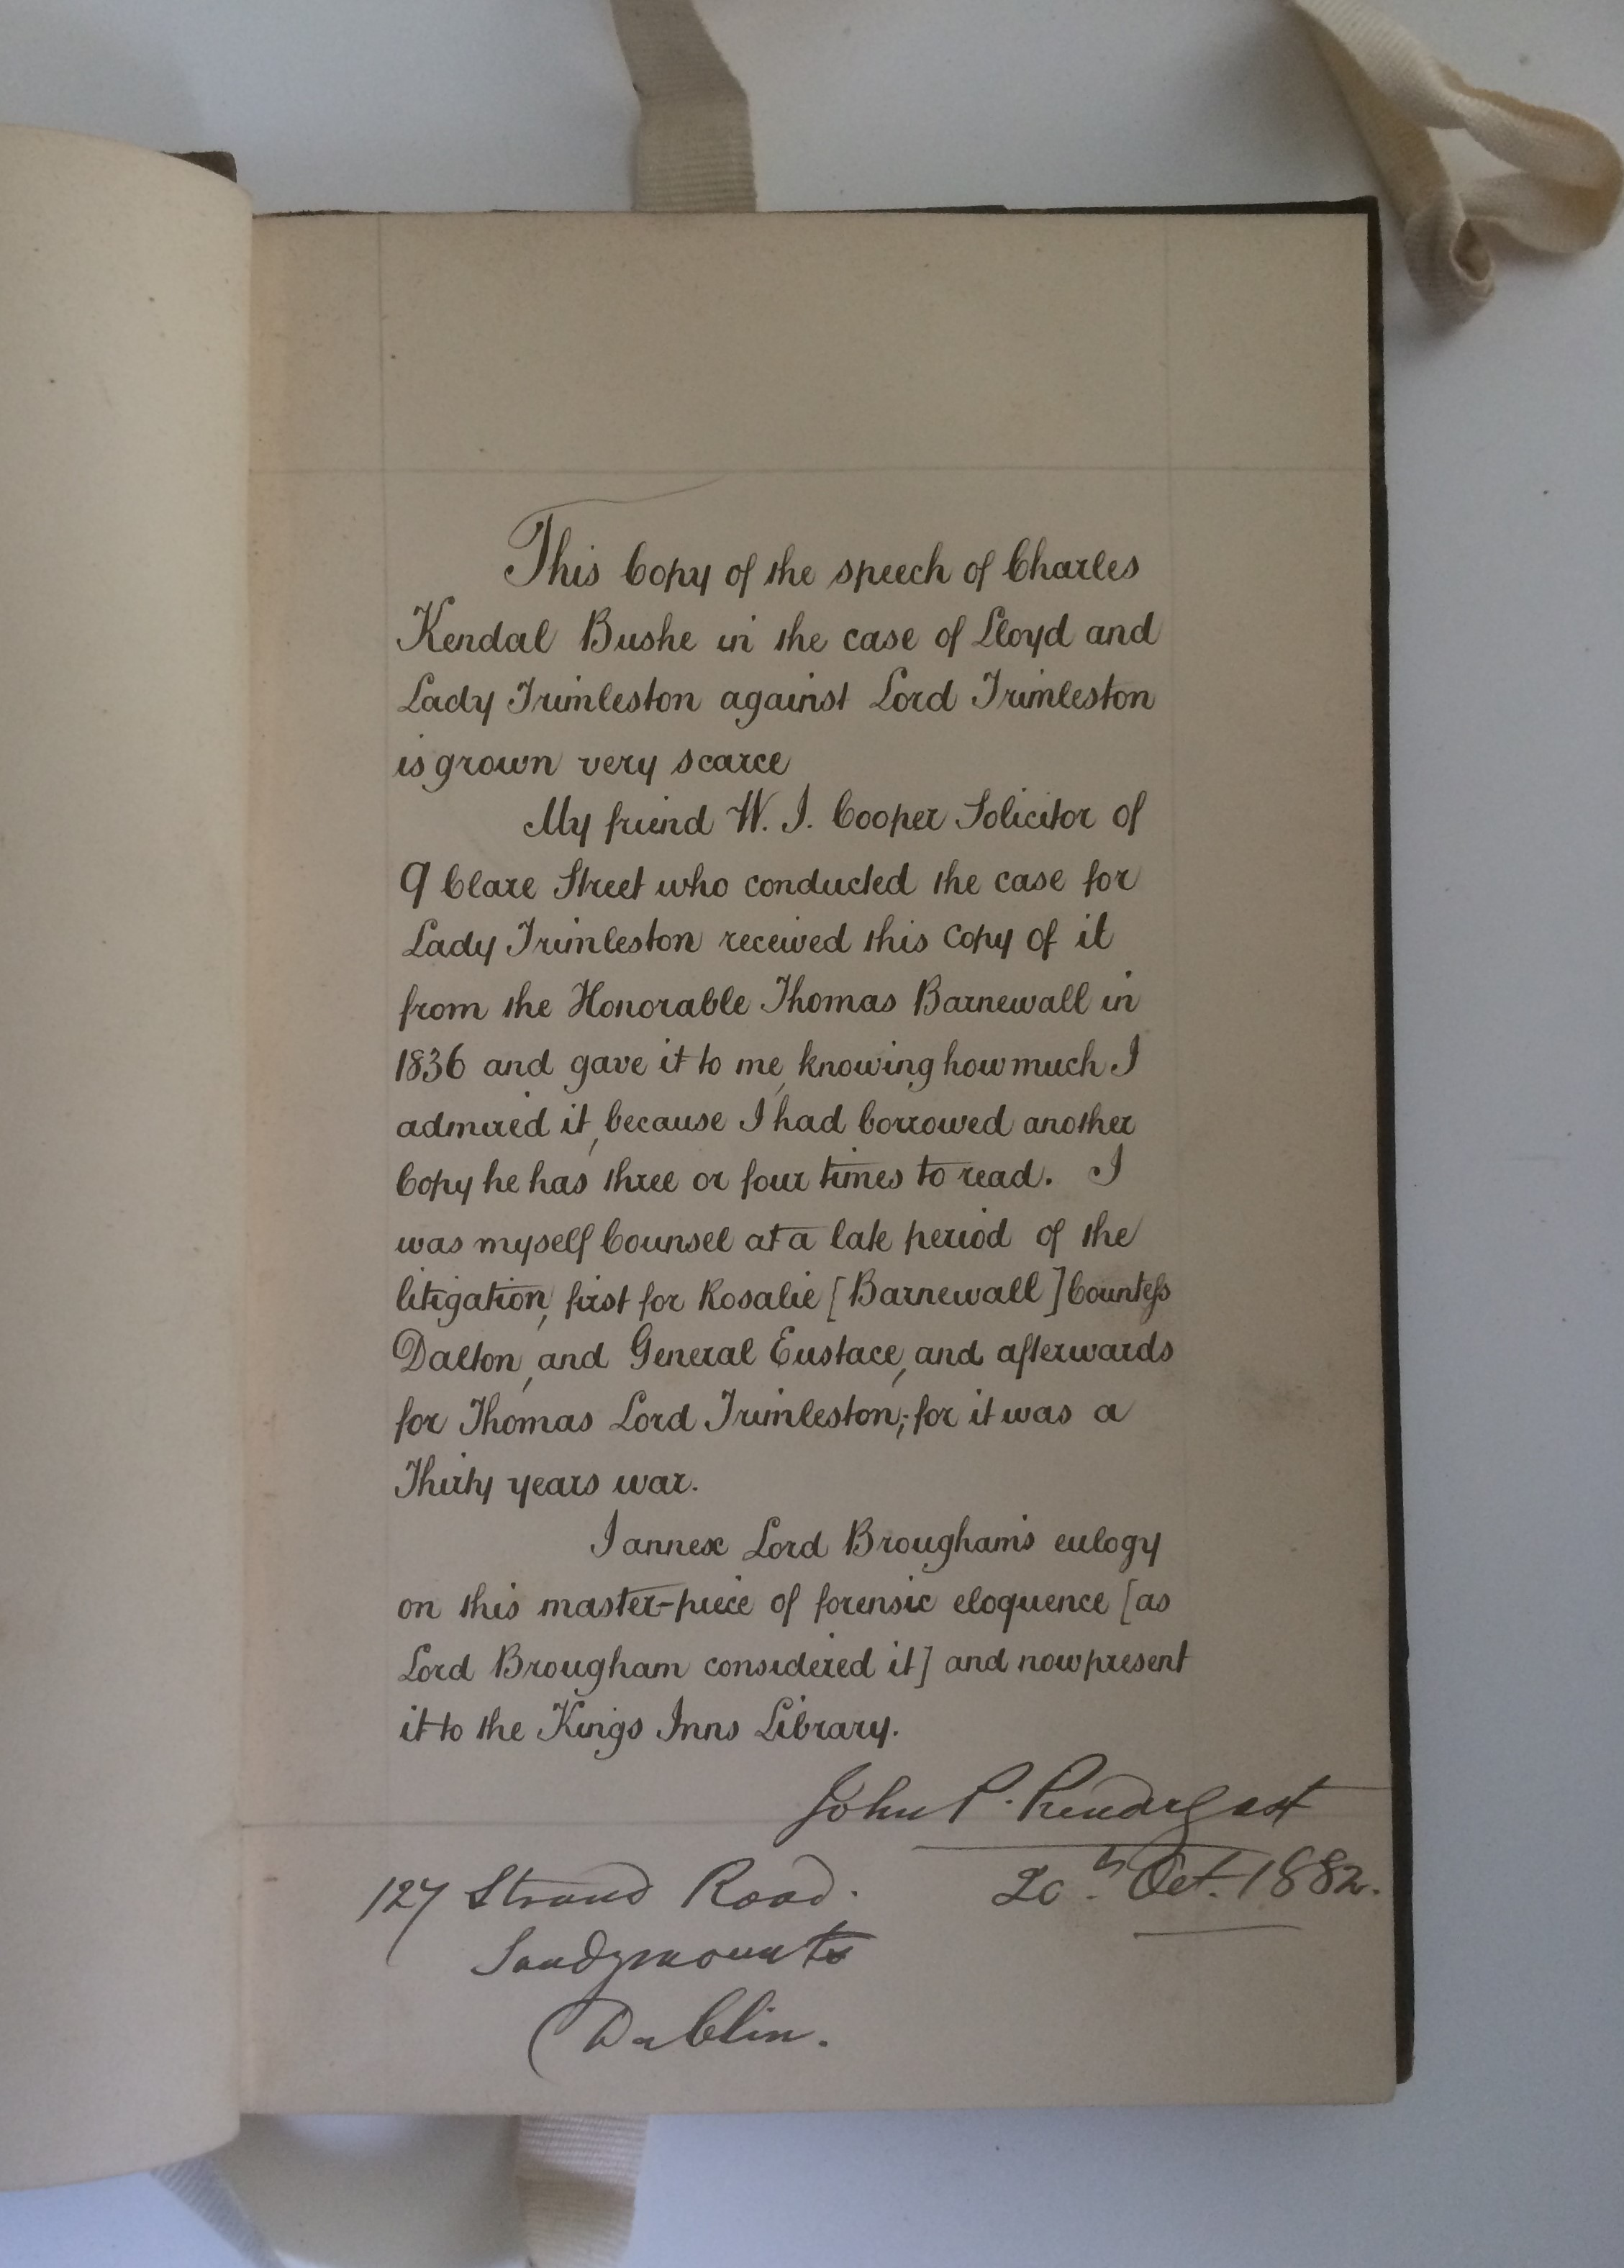 This Copy of the speech of Charles
Kendal Bushe in the case of Lloyd and
Lady Trimleston against Lord Trimleston
is grown very scarce
My friend W. J. Cooper Solicitor of
9 Clare Street who conducted the case for
Lady Trimleston received this copy of it
from the Honorable Thomas Barnewall in
1836 and gave it to me, knowing how much I
admired it, because I had borrowed another
Copy he has three or four times to read. I
was myself Counsel at a late period of the
litigation, first for Rosalie [Barnewall] Countess
Dalton, and General Eustace, and afterwards
for Thomas Lord Trimleston; for it was a
Thirty years war.
I annex Lord Brougham's eulogy
on this master-piece of forensic eloquence [as
Lord Brougham considered it] and now present
it to the Kings Inns Library.
John P. Prendergast
20th Oct. 1882.
127 Strand Road.
Sandymount
Dublin.